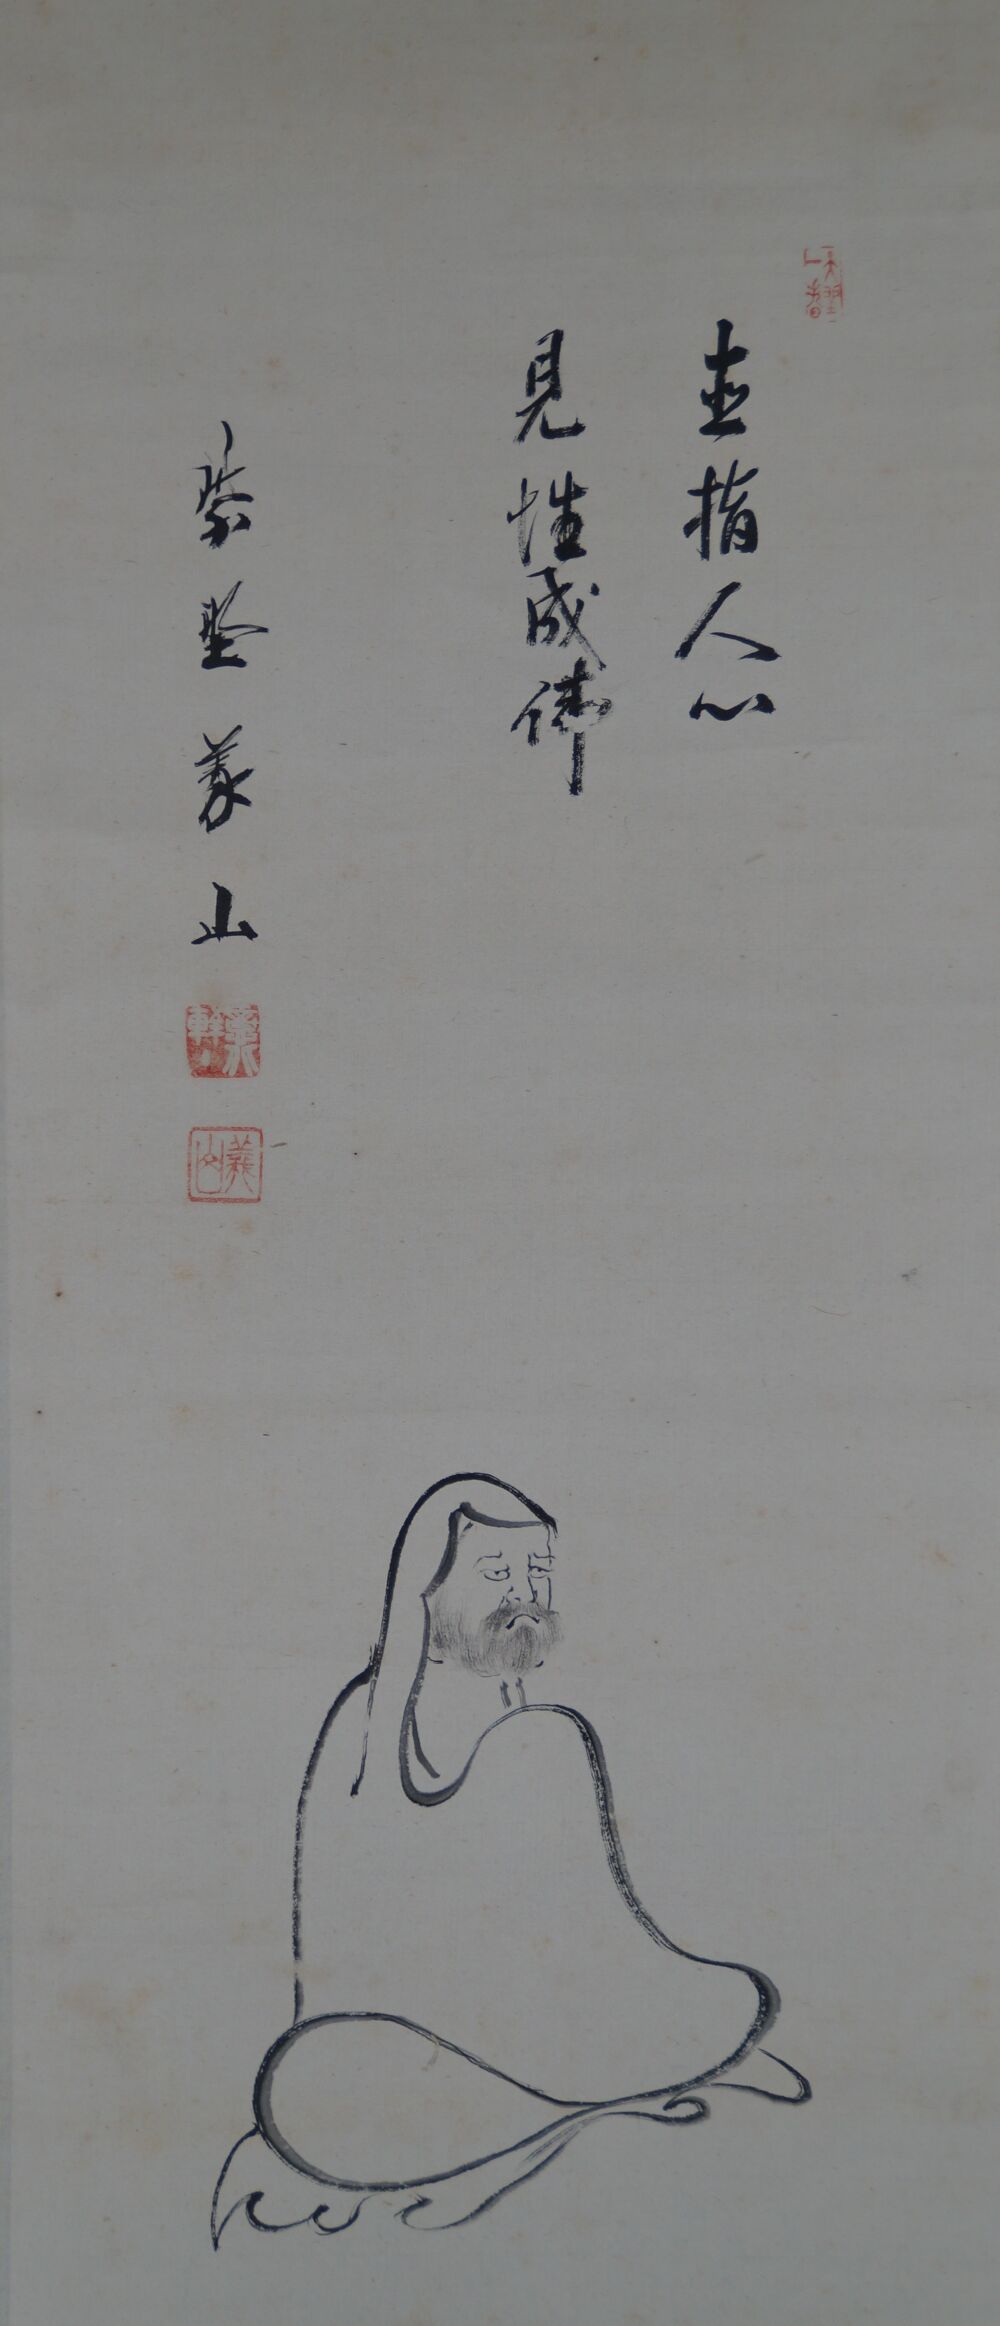 直指人心
見性成佛
紫埜義山
義山